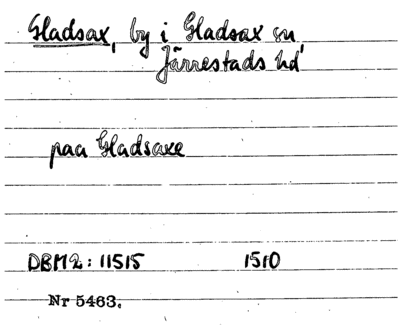 Gladsax, by i Gladsax sn,
Järrestads hd
paa Gladsaxe
DBM2: 11515 1510
Nr 5463.